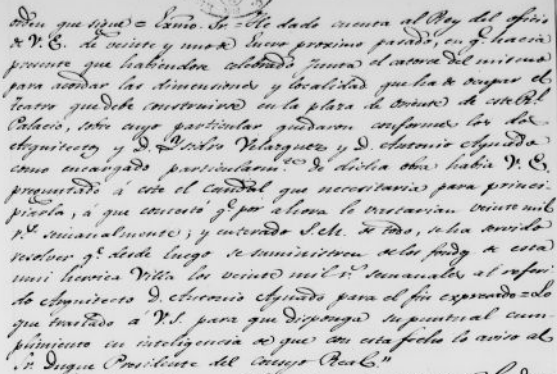 orden que sigue = Exmo. Sr. = He dado cuenta al Rey del oficio
de V.E. de veinte y uno de Enero proximo pasado, en q.e hacia
presente que habiendose celebrado Junta el catorce del mismo
para acordar las dimensiones y localidad que ha de ocupar el
Teatro que debe construirse en la plaza de oriente de este Rl.
Palacio, sobre cuyo particular quedaron conformes los dos
Arquitectos y D. Ysidro Velazquez y D. Antonio Aguado
como encargado particularm.te de dicha obra habia V.E.
preguntado á este el caudal que necesitaria para princi-
piarla, á que contestó q.e por ahora le bastarian veinte mil
r.s semanalmente; y enterado S.M. de todo, se ha servido
resolver q.e desde luego se suministren de los fondos de esta
muy heroica Villa los veinte mil r.s semanales al referi-
do Arquitecto D. Antonio Aguado para el fin expresado = Lo
que traslado á V.S. para que disponga su puntual cum-
plimiento en inteligencia de que con esta fecha lo aviso al
Sr. Duque Presidente del Consejo Real."